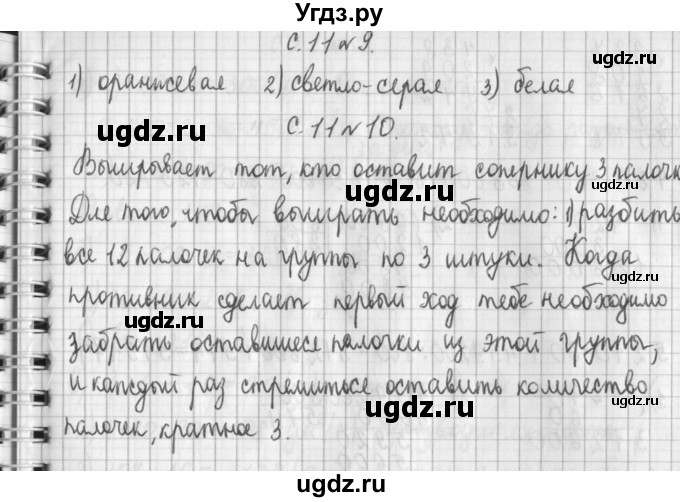 Угдз.ру
С. 11 № 9.
ugdz.ru
1) оранжевая 2) светло-серая 3) белая
ugdz.ru
С. 11 № 10.
ugdz.ru
Выигрывает тот, кто оставит сопернику 3 палочк
ugdz.ru
Для того, чтобы выиграть необходимо: 1) разбить
все 12 палочек на группы по 3 штуки. Когда
ugdz.ru
противник сделает первый ход тебе необходимо
ugdz.ru
забрать оставшиеся палочки из этой группы,
и каждый раз стремиться оставить количество
ugdz.ru
ugdz.ru
палочек, кратное 3.
ugdz.ru